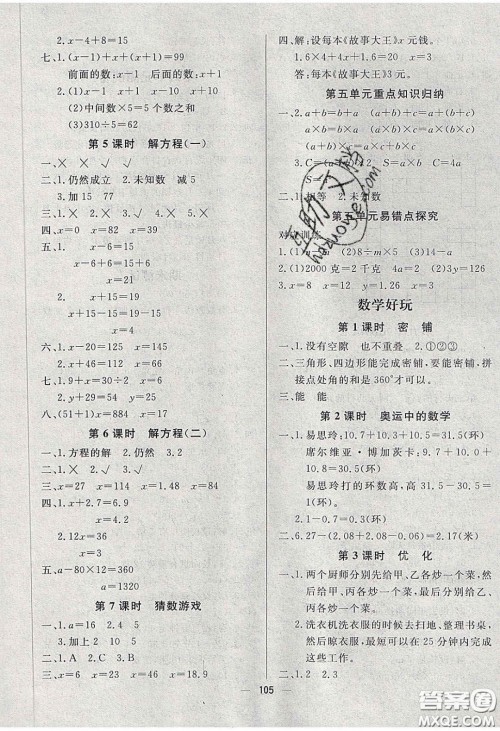 2.x-4+8=15
七、1.(x-1)+x+(x+1)=99
前面的数:x-1 后面的数:x+1
2.(1)x-1 x+1
(2)中间数×5=5个数之和
(3)310÷5=62
第5课时 解方程(一)
一、╳ ╳ √ ╳
二、1.仍然成立 2.未知数 减5
3.加15 77
三、1.╳ 2.√ 3.╳ 4.╳
四、x=0 x=82 x=15
五、1. x-6=15
x-6+6=15+6
x=21
2. x+15=19
x+15-15=19-15
x=4
六、1.x+18=108 x=90
2.x+46=112 x=66
七、1.(9+x)÷2=10 x=11
八、(51+1)x=884 x=17
第6课时 解方程(二)
一、1.方程的解 2.仍然 3.1.2
二、1.╳ 2.╳ 3.√ 4.√
三、x=30 x=9 x=30 x=12
四、1.2x+2.7=6.9
x=2.1
2.4x=360
x=90
五、a-80×12=360
a=1320
第7课时 猜数游戏
一、1.a=16 2.4 5
3.加上2 10 5
二、1.A 2.C 3.B
三、x=6 x=9.5 x=8 x=9
四、解:设每本《故事大王》x元钱。
1.6×4+4x=18.4 x=3
答:每本《故事大王》3元。
第五单元重点知识归纳
一、2.a+b=b+a (a+b)+c=a+(b+c)
a×b=b×a
3.C=4a S=a
二、1.相等 2.未知数
第五单元易错点探究
1.(1)a (2)8÷m×5
2.(1)2000克=2千克 4a=2 (2)3y=126
3.x=8 x=12 x=1.2 x=8.1
数学好玩
第1课时 密铺
一、1.没有空隙 也不重叠 2.①②③
二、三角形、四边形能完成密铺,要能密铺,拼
接点处角的和是360°才可以。
三、能 能
第2课时 奥运中的数学
一、1.易思玲:10.7+10.3+10.5=31.5(环)
席尔维亚·博加茨卡:9.7+9.9+
10.8=30.4(环)
易思玲打的环数高,高31.5-30.4=
1.1(环)
2.1-0.7=0.3(环)
二、6.27-(2.08+2.06)=2.13(环)
第3课时 优化
一、1.两个厨师分别先给甲、乙各炒一个菜,
然后给甲、丙各炒一个菜,最后分别给
乙、丙各炒一个菜。
2.洗衣机洗衣服的时候去扫地、整理书桌,
然后晾衣服,最少可以在25分钟内完成
这些工作。
二、1.2 2.3
105
答案圈
MXQE.COM